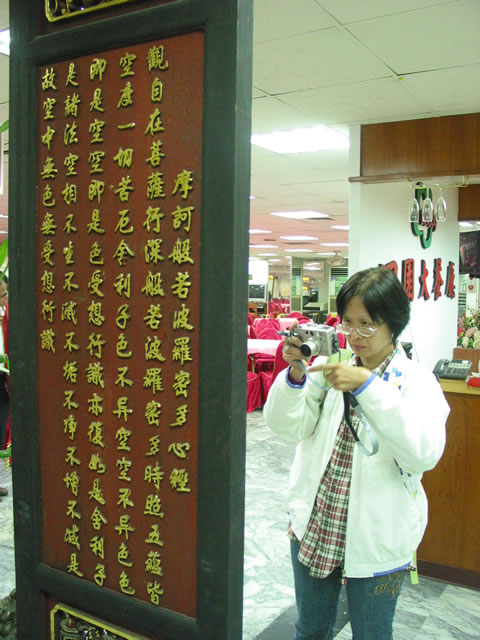 摩訶般若波羅蜜多心經
觀自在菩薩行深般若波羅蜜多時照五蘊皆
空度一切苦厄舍利子色不异空空不异色色
即是空空即是色受想行識亦復如是舍利子
是諸法空相不生不滅不垢不淨不增不減是
故空中無色無受想行識
國大餐廳